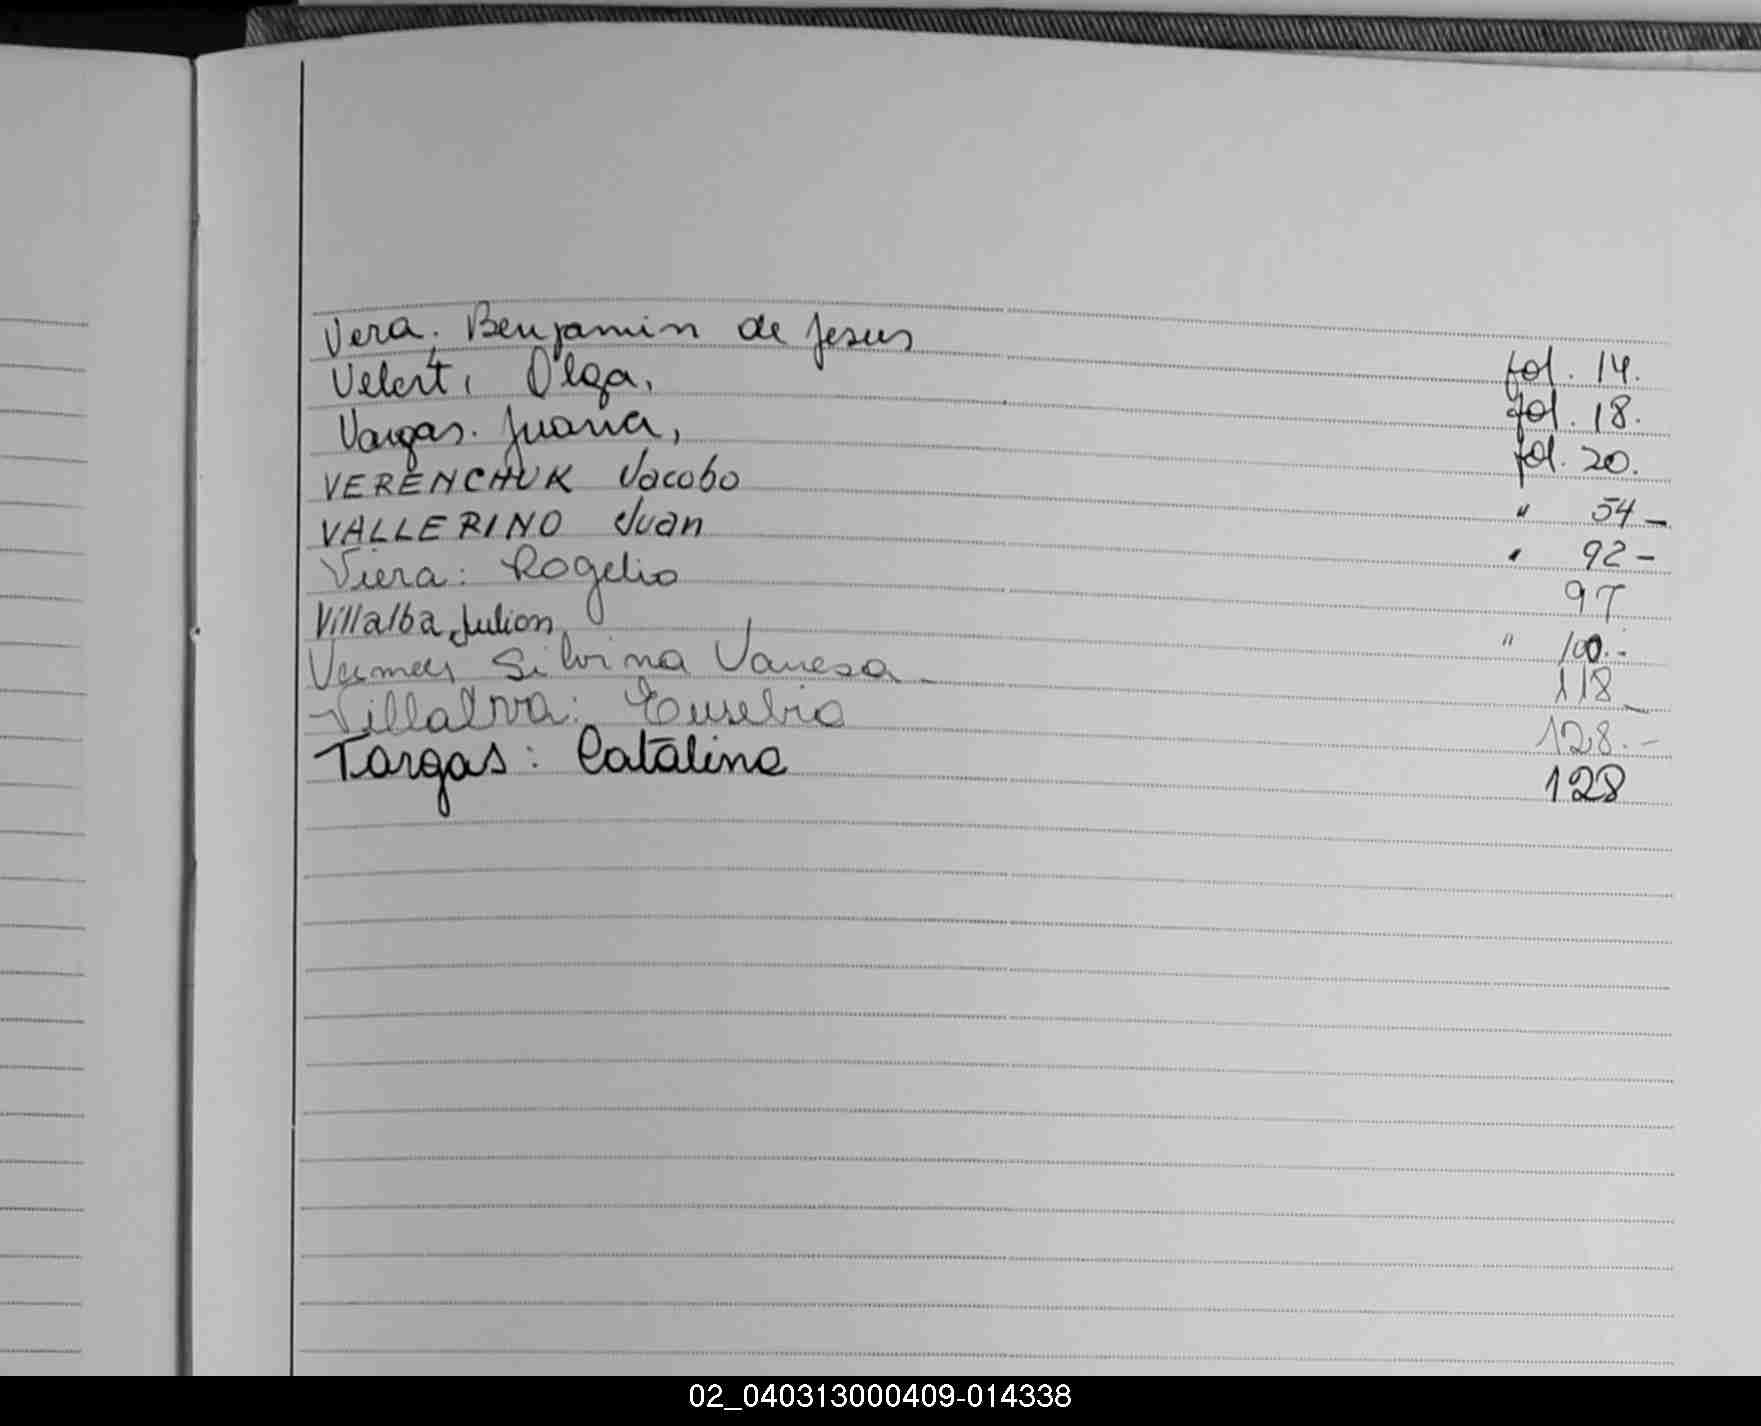 Vera. Benjamin de Jesus fol. 14.
Velert, Olga, fol. 18.
Vargas. Juana, fol. 20.
VERENCHUK Jacobo " 54-
VALLERINO Juan " 92-
Viera: Rogelio 97
Villalba Julion " 100.-
Silvina Vanesa - 118-
Villalva: Eusebio 128.-
Targas: Catalina 128
02_040313000409-014338